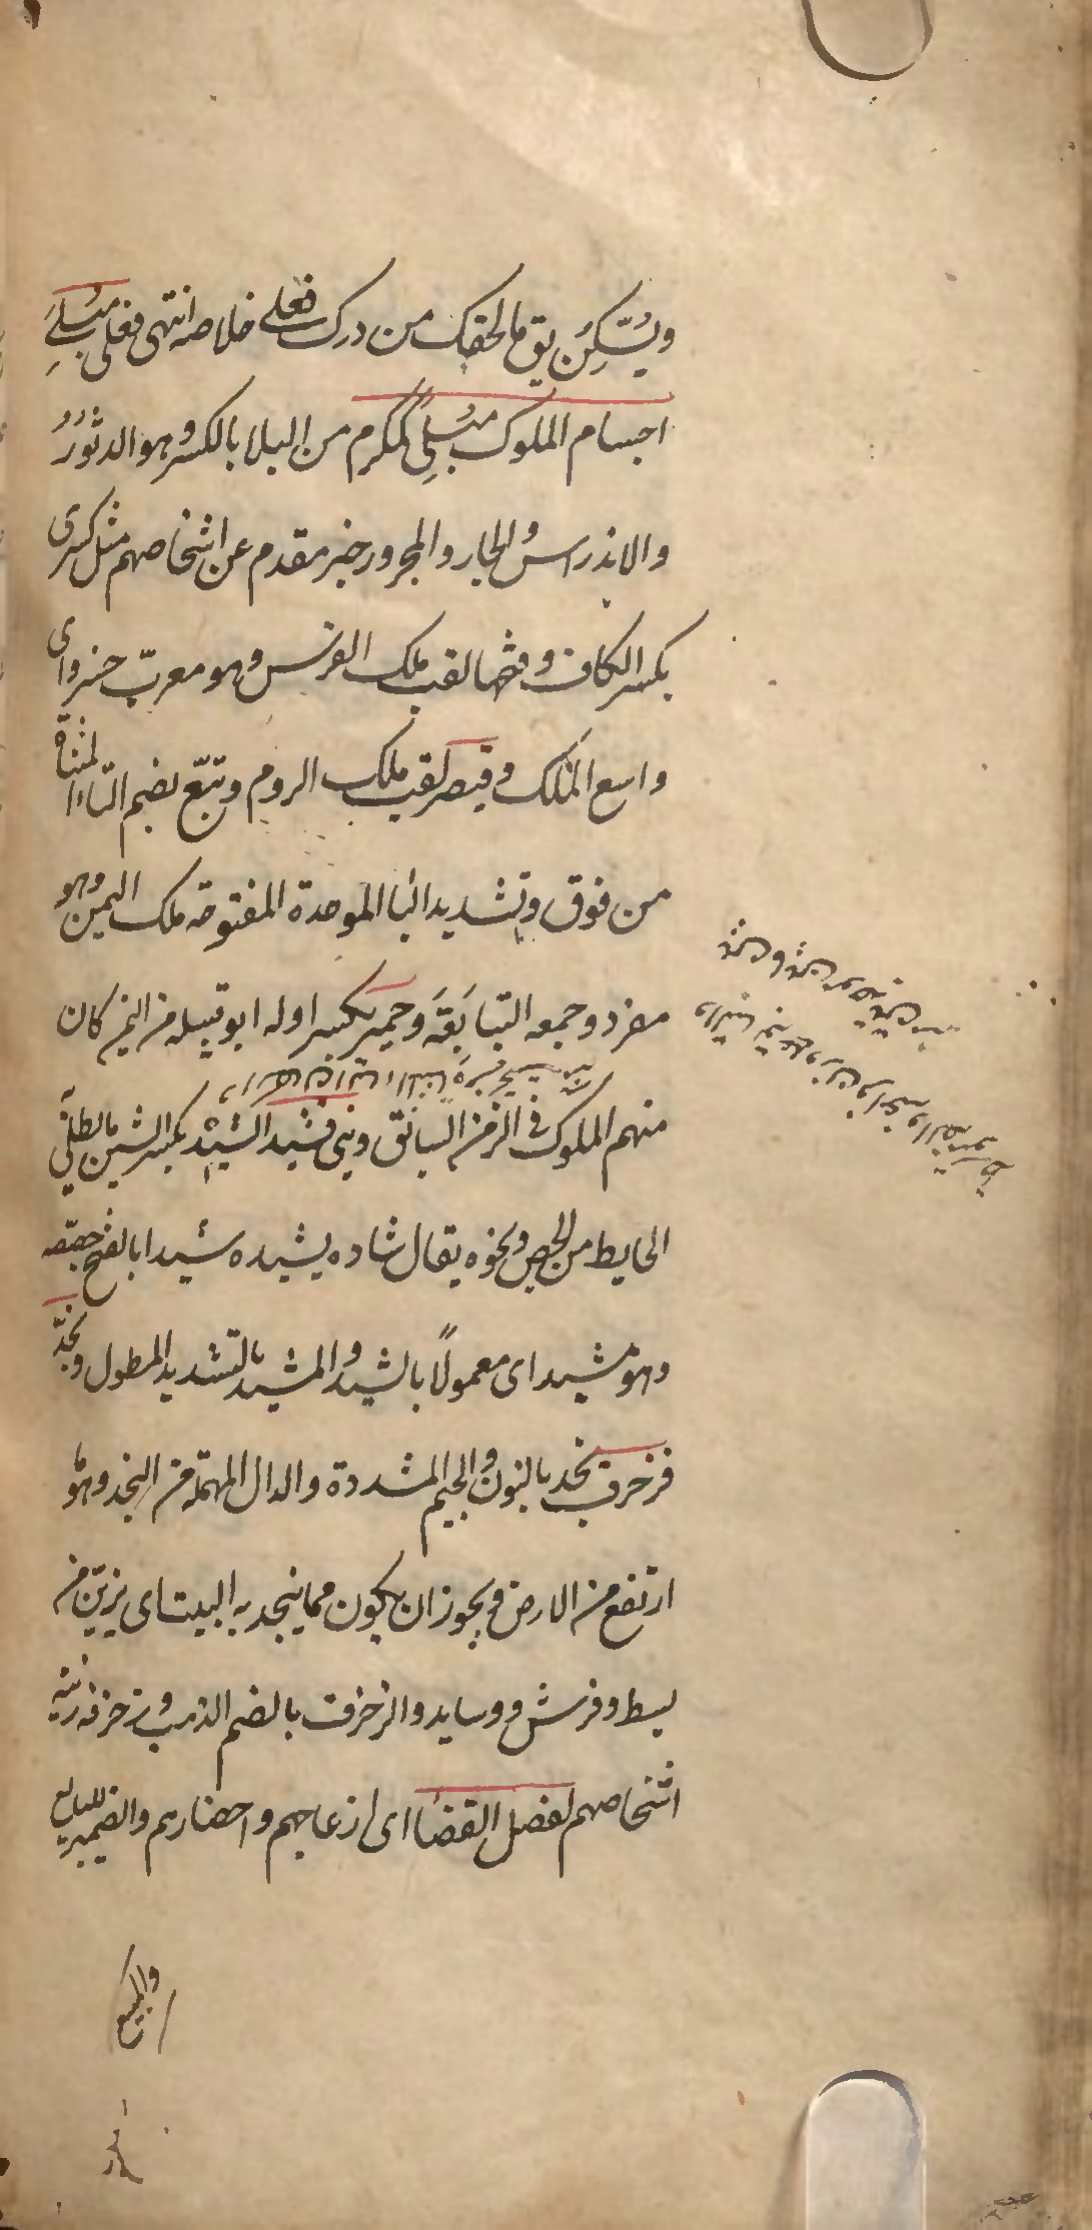 ويُسَكِّن يق ما لحقك من درك فعلى خلاصه انتهى فعلى مُبلِى
اجسام الملوك مُبلِى كمكرم من البلا بالكسر وهو الدثورُ
والاندراس والجار والمجرور خبر مقدم عن اشخاصهم مثل كسرى
بكسر الكاف وفتحها لقب ملك الفرس وهو معرّب خسرو اى
واسع الملك وقيصر لقب ملك الروم وتبّع بضم التاء المثناة
من فوق وتشديد البا الموحدة المفتوحة ملك اليمن وهو
مفرد وجمعه التبابَعَة وحِمير بكسر اوله ابو قبيله من اليمن كان
منهم الملوك فى الزمن السابق وبنى فشيد الشِيْد بكسر الشين ما يطلى
الحايط من الجص ونحوه يقال شاده يشيده شيدا بالفتح جصّصه
وهو مشيد اى معمولًا بالشيد والمشيد بالتشديد المطول ونجّد
فزخرف نجد بالنون والجيم المشددة والدال المهملة من النجد وهو ما
ارتفع من الارض ويجوز ان يكون مما ينجد به البيت اى يزيّن من
بسط وفرش ووسايد والزخرف بالضم الذهب وزخرفه زينه
اشخاصهم لفصل القضا اى ازعاجهم واحضارهم والضمير للبايع
والمبيع